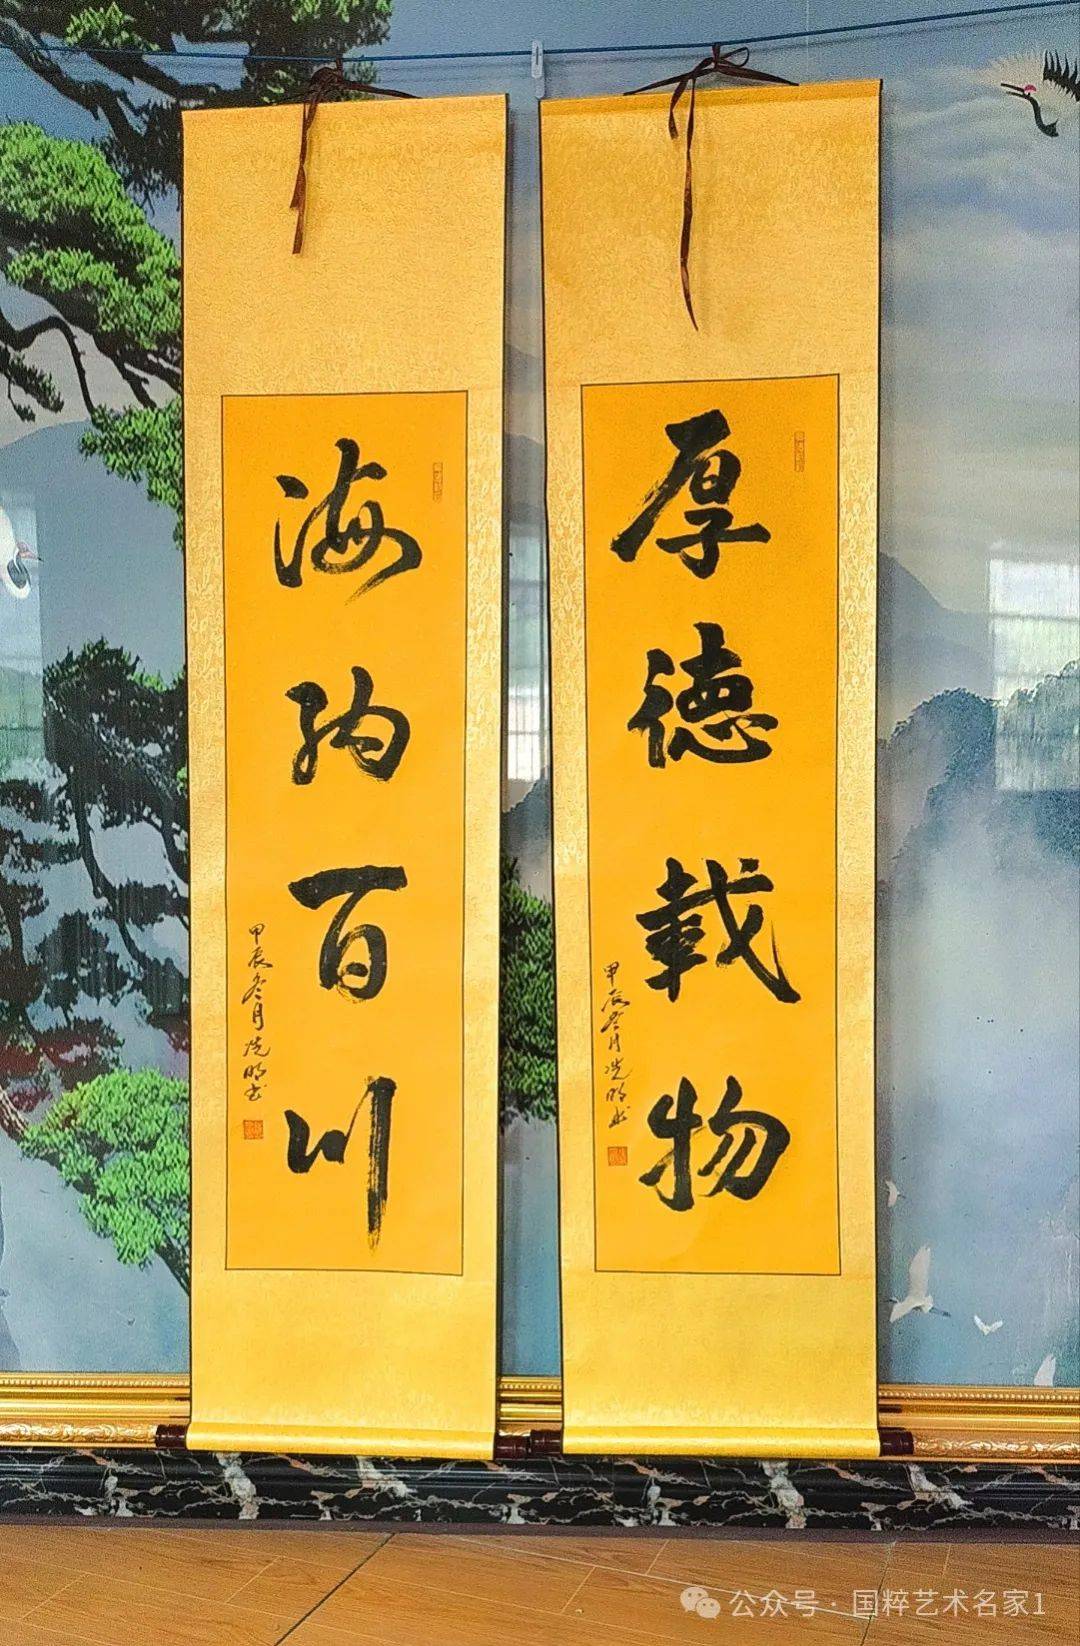 厚德载物
甲辰冬月冼明书
海纳百川
甲辰冬月冼明书
公众号·国粹艺术名家1